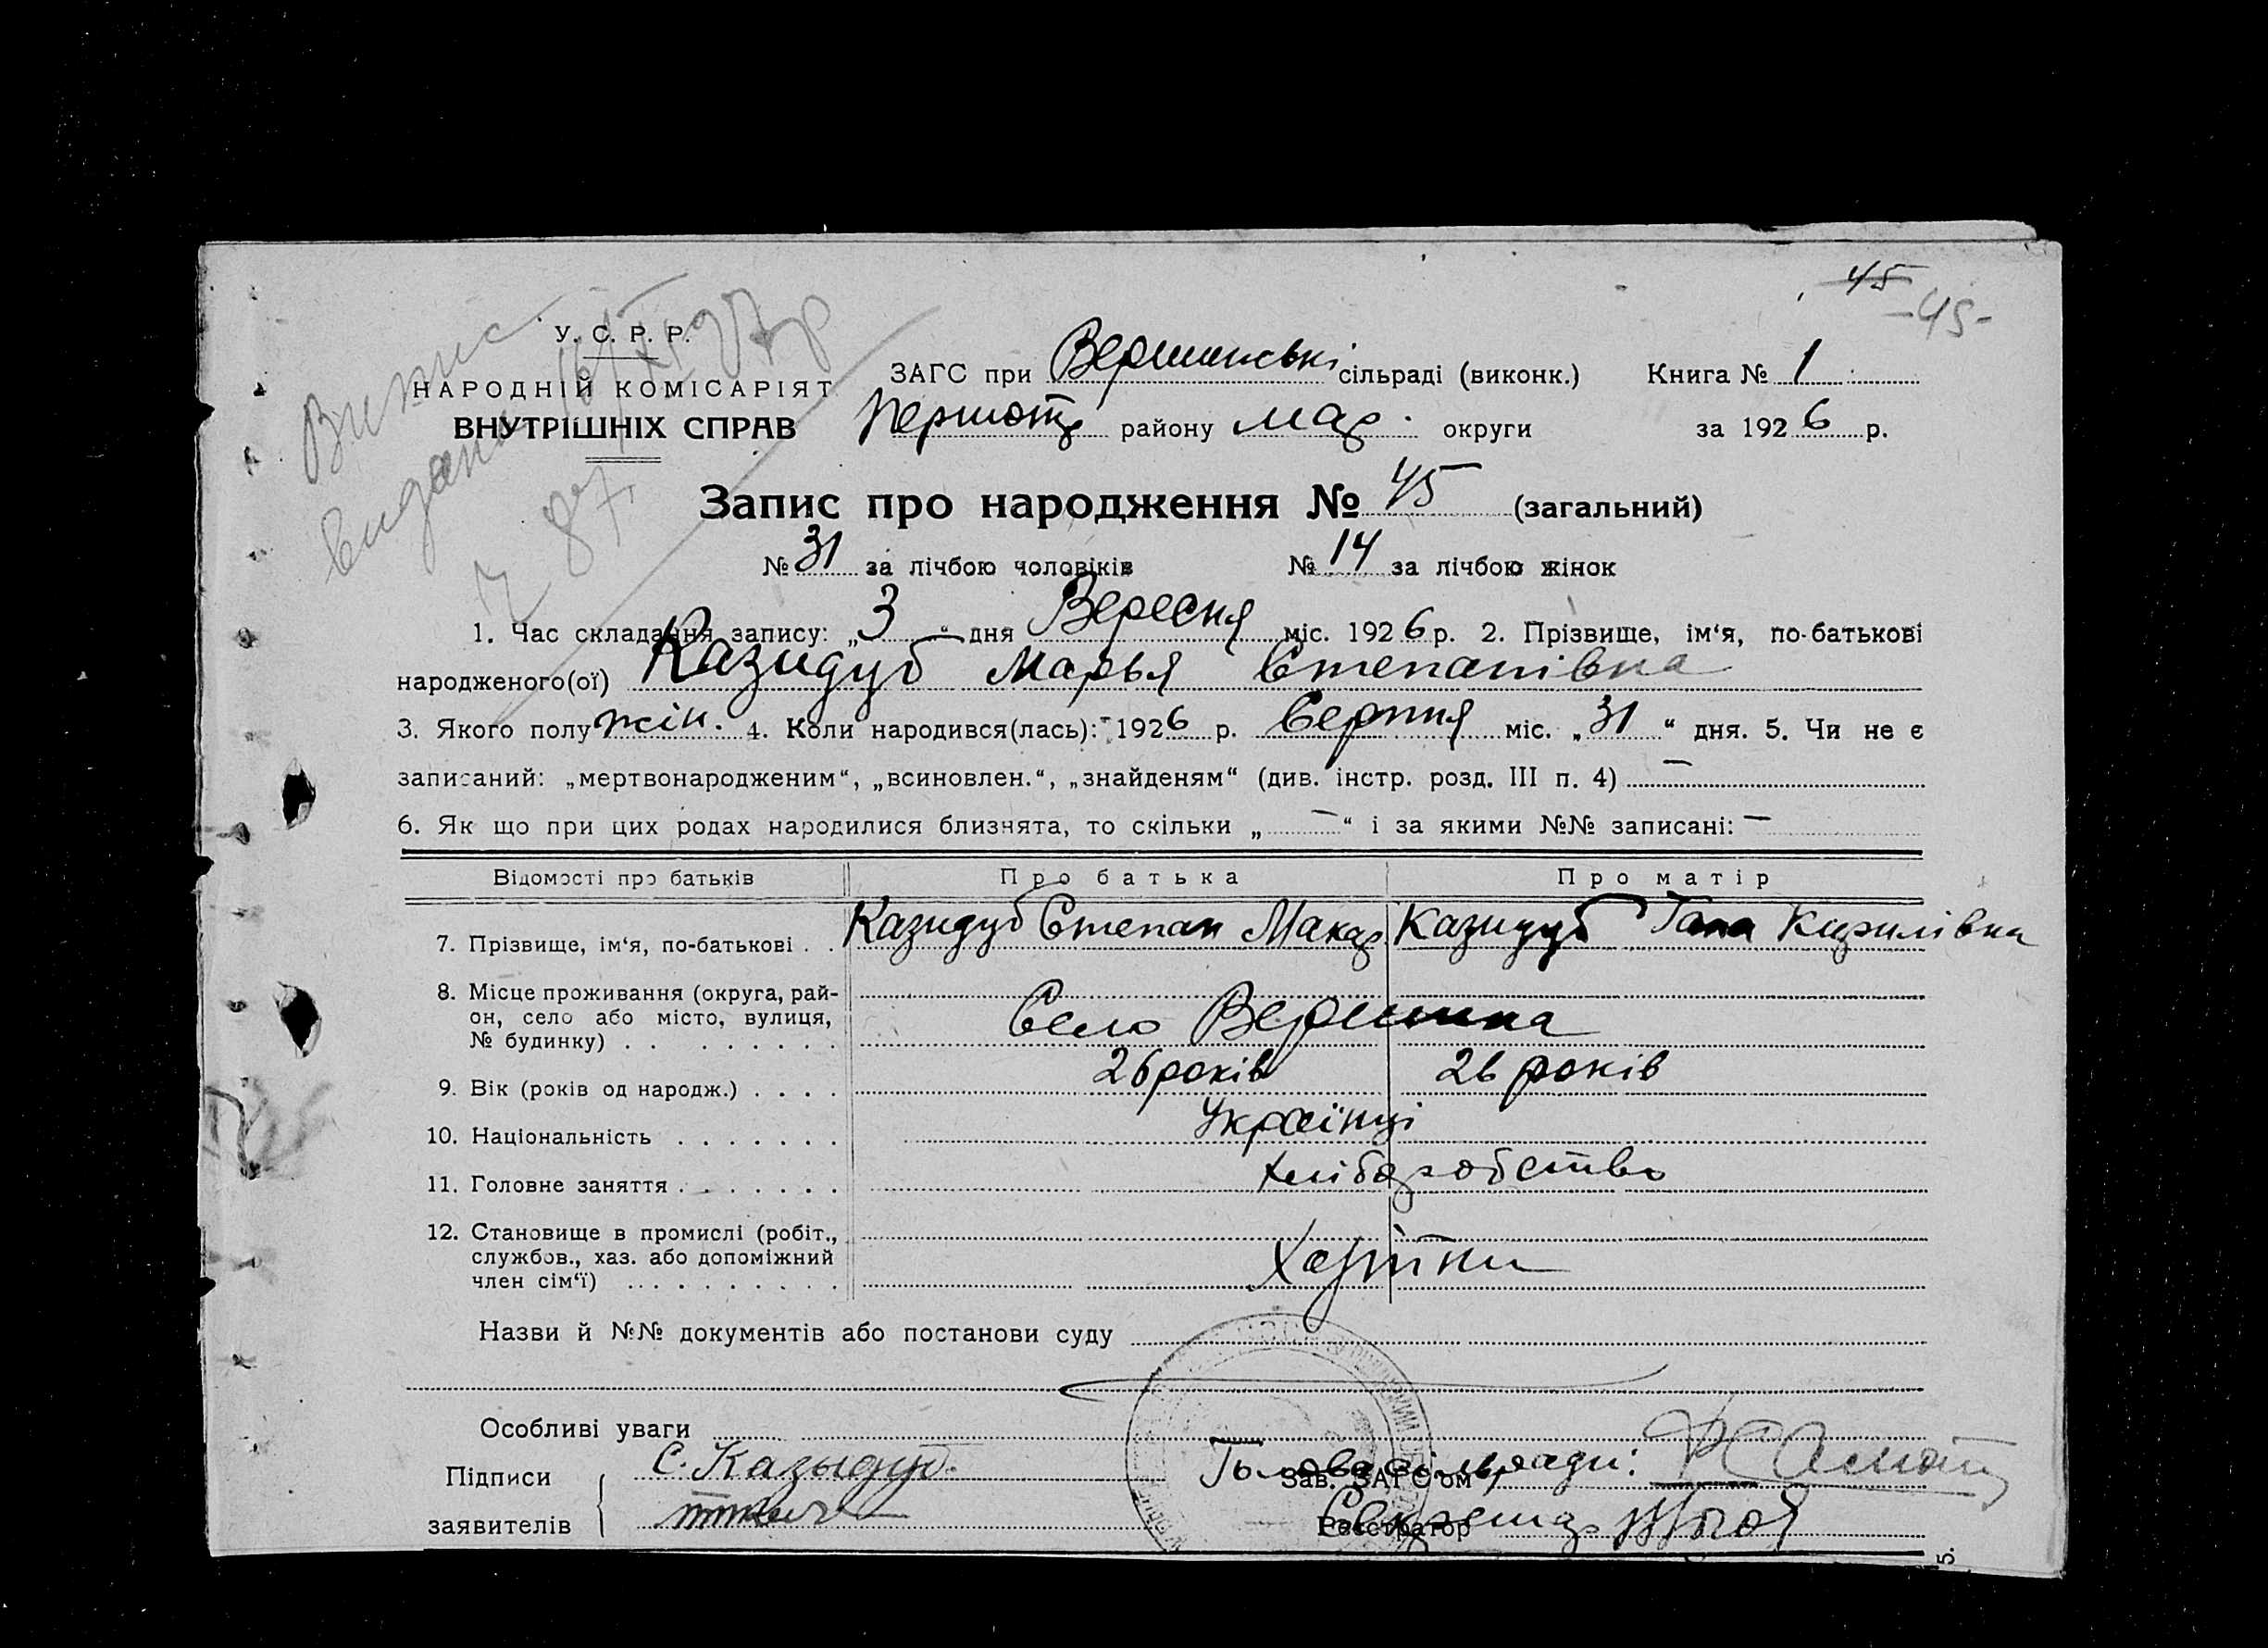 45
-45-
Витяг
видано 16/XI 27р
У. С. Р. Р.
НАРОДНІЙ КОМІСАРІЯТ
ВНУТРІШНІХ СПРАВ
ЗАГС при Вершинські сільраді (виконк.) Книга № 1
Першотр району Мар. округи за 1926 р.
Запис про народження № 45 (загальний)
№ 31 за лічбою чоловіків № 14 за лічбою жінок
1. Час складання запису: „3“ дня Вересня міс. 1926 р. 2. Прізвище, ім‘я, по-батькові
народженого(ої) Казидуб Марья Степанівна
3. Якого полу жін. 4. Коли народився(лась): 1926 р. Серпня міс. „31“ дня. 5. Чи не є
записаний: „мертвонародженим“, „всиновлен.“, „знайденям“ (див. інстр. розд. III п. 4) —
6. Як що при цих родах народилися близнята, то скільки „—“ і за якими №№ записані: —
Відомості про батьків Про батька Про матір
7. Прізвище, ім‘я, по-батькові . . Казидуб Степан Макар Казидуб Гапа Кирилівна
8. Місце проживання (округа, рай-
он, село або місто, вулиця,
№ будинку) Село Вершина
9. Вік (років од народж.) . . . . 26 років 26 років
10. Національність Українці
11. Головне заняття Хліборобство
12. Становище в промислі (робіт.,
службов., хаз. або допоміжний
член сім‘ї)
Назви й №№ документів або постанови суду
Особливі уваги
Підписи С. Казыдуб Голова сільради:
Зав. ЗАГС‘ом
заявителів Секретар
Реєстратор
5.